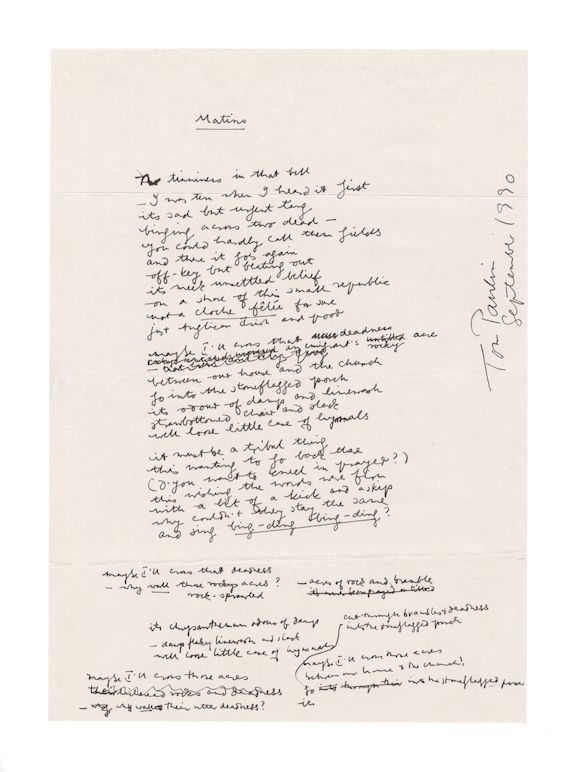 Matins
tinniness in that bell
– I was ten when I heard it first
its sad but urgent tang
binging across two dead –
you could hardly call them fields
and there it goes again
off-key but beating out
its meek unsettled belief
on a shore of this small republic
not a cloche fêlée for sure
just Anglican thin and poor
maybe I'll cross that deadness
an emigrant's untilled rocky acre
between our house and the church
go into the stoneflagged porch
its odour of damp and limewash
strawbottomed chair and slack
well loose little case of hymnals
it must be a tribal thing
this wanting to go back there
(d'you want to kneel in prayer?)
this wishing the words were from
with a bit of a kick and a skip
why couldn't they stay the same
and sing bing-ding bing-ding?
Tom Paulin
September 1990
maybe I'll cross that deadness
– why wall those rocky acres?
rock-sprawled
– acres of rock and bramble
its chrysanthemum odour of damp
– damp flaky limewash and slack
well loose little case of hymnals
cut through brambles & deadness
into the stoneflagged porch
maybe I'll cross those acres
between our house & the church
go into the stoneflagged porch
its
maybe I'll cross those acres
and deadness
– why wall their utter deadness?